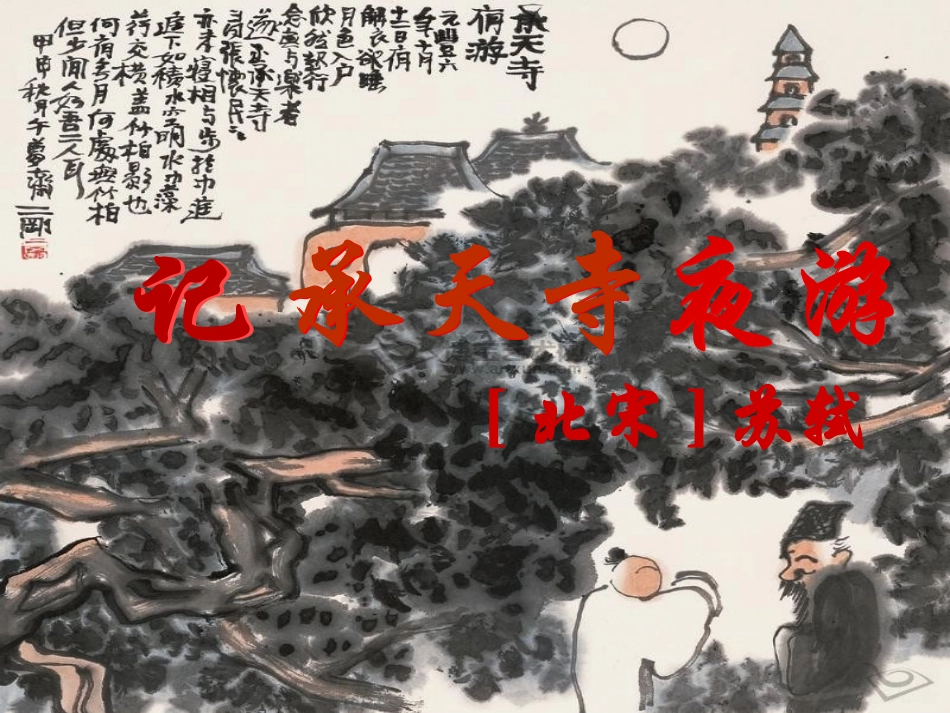 承天寺
夜游
元豐六
年十月
十二日夜
解衣欲睡
月色入户
欣然起行
念無与樂者
遂至承天寺
尋張懷民
亦未寝相与步於中庭
庭下如積水空明水中藻
荇交横蓋竹柏影也
何夜無月何處無竹柏
但少閒人如吾二人耳
甲申秋月午夢齋一剛
记承天寺夜游
[北宋]苏轼